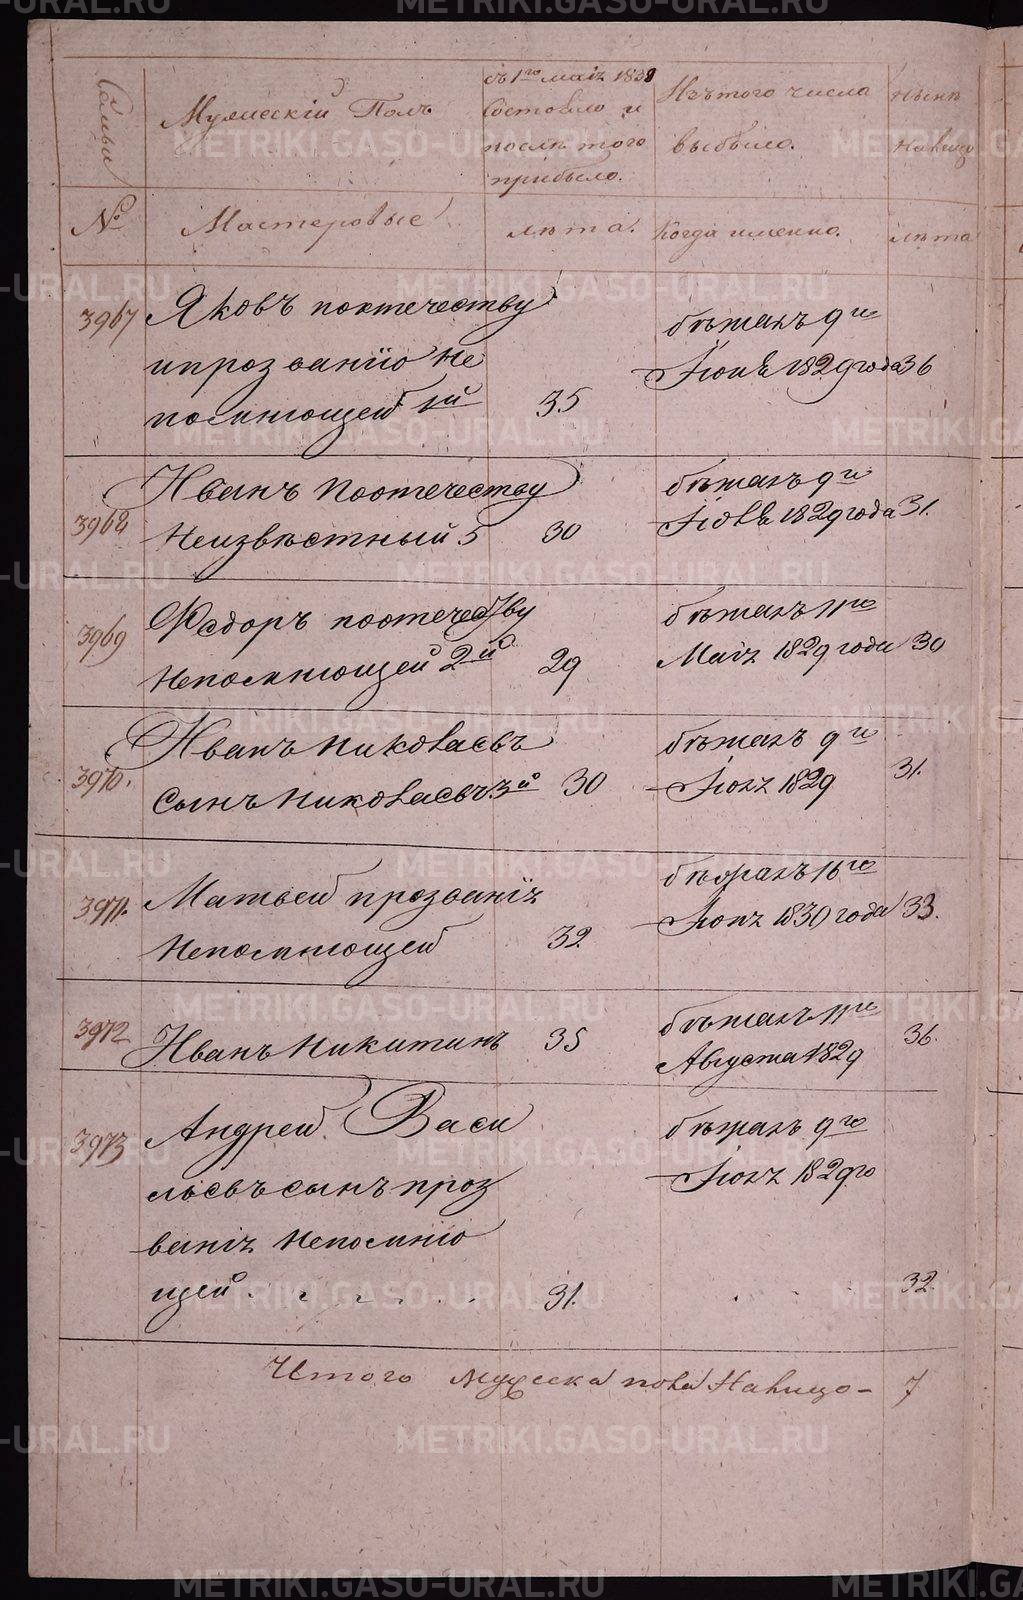 Семьи
Мужескій Полъ
съ 1го маія 1828
Состояло и
послѣ того
прибыло.
Изъ того числа
выбыло.
Нынѣ
На лицо
№
Мастеровые
лѣта.
Когда именно.
лѣта
3967
Яковъ поотечеству
ипрозванію не
помнющей 1й
35
бѣжалъ 9го
Іюня 1829 года
36
3968
Иванъ поотечеству
Неизвѣстный 5
30
бѣжалъ 9го
Іюля 1829 года
31.
3969
Федоръ поотечеству
Непомнющей 2й
29
бѣжалъ 11го
Маія 1829 года
30
3970.
Иванъ Николаевъ
сынъ Николаевъ 3й
30
бѣжалъ 9го
1829
31.
3971.
Матвей прозванія
Непомнющей
32
бѣжалъ 16го
1830 года
33.
3972
Иванъ Никитинъ
35
бѣжалъ 11го
Августа 1829
36.
3973
Андрей Васи
льевъ сынъ проз
ванія Непомнію
щей
31.
бѣжалъ 9го
1829го
32.
Итого мужеска пола На лицо – 7
METRIKI.GASO-URAL.RU